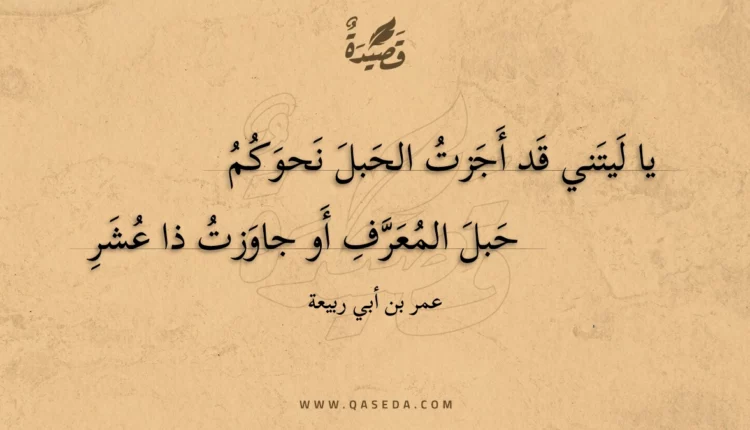 قَصِيدَةٌ
يا لَيتَني قَد أَجَزتُ الحَبلَ نَحوَكُمُ
حَبلَ المُعَرَّفِ أَو جاوَزتُ ذا عُشَرِ
عمر بن أبي ربيعة
WWW.QASEDA.COM